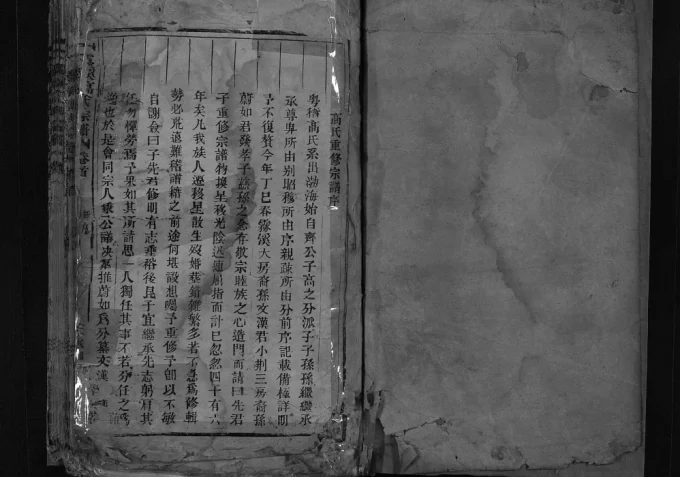 高氏重修宗譜序
粵稽高氏系出渤海始自齊公子高之分派子子孫孫繼繼承
承尊卑所由別昭穆所由序親疎所由分前序記載備極詳明
予不復贅今年丁巳春豫溪大房裔孫文漢君小荆三房裔孫
蔚如君發孝子慈孫之念存敬宗睦族之心造門而請曰先君
子重修宗譜物換星移光陰迅速屈指而計已忽忽四十有六
年矣凡我族人遷移星散生歿婚塟錯雜繁多若不急爲修輯
勢必荒遠難稽譜牒之前途何堪設想囑予重修予卽以不敏
自謝僉曰子先君修明有志垂裕後昆子宜繼承先志躬肩其
任勿憚勞焉予果如其所請思一人獨任其事不若分任之爲
也於是會同宗人衆公議决羣推蔚如爲外纂文漢